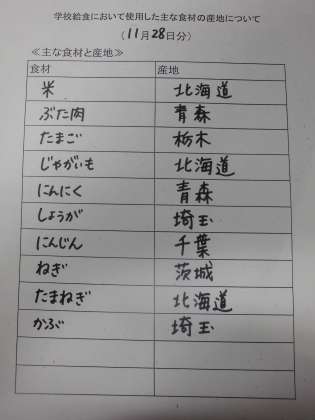 学校給食において使用した主な食材の産地について
（11月28日分）
≪主な食材と産地≫
食材 産地
米 北海道
ぶた肉 青森
たまご 栃木
じゃがいも 北海道
にんにく 青森
しょうが 埼玉
にんじん 千葉
ねぎ 茨城
たまねぎ 北海道
かぶ 埼玉